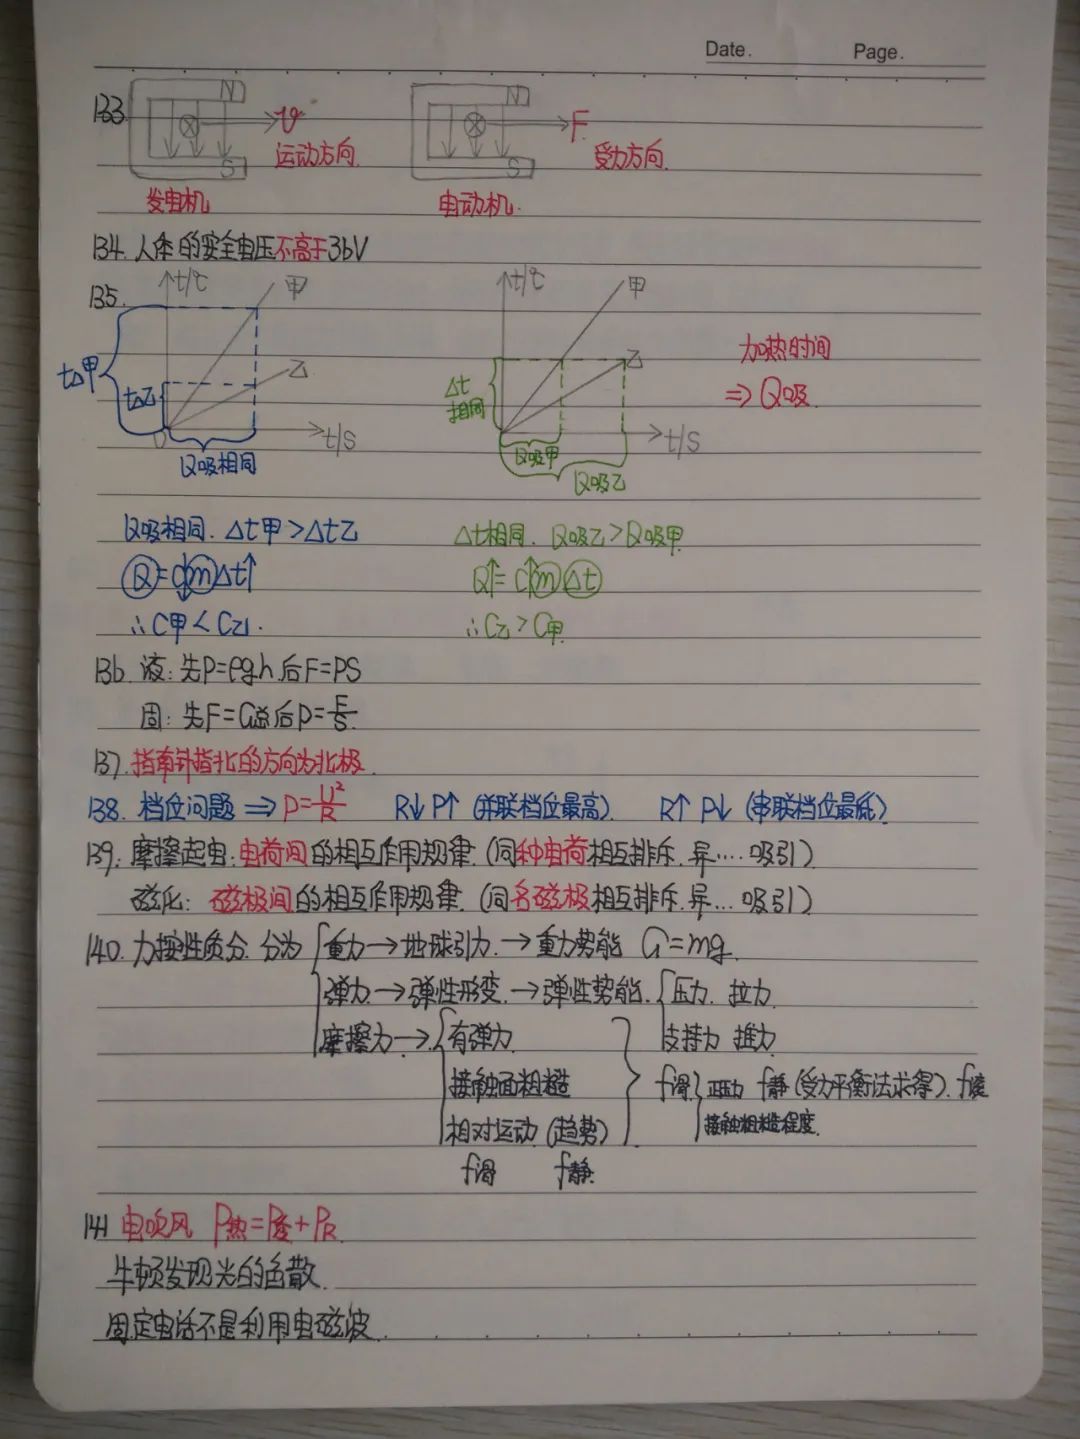 Date. Page.
133. N S v 运动方向 发电机 N S F 受力方向 电动机.
134. 人体的安全电压不高于36V
135. t/℃ 甲 乙 t△甲 t△乙 0 t/S Q吸相同 t/℃ 甲 乙 △t相同 t/S Q吸甲 Q吸乙 加热时间 ⇒ Q吸
Q吸相同. △t甲>△t乙 △t相同. Q吸乙>Q吸甲
Q=c↓m△t↑ Q↑=c↑m△t
∴C甲<C乙. ∴C乙>C甲
136. 液: 先P=ρgh后F=PS
固: 先F=G总后P=F/S
137. 指南针指北的方向为北极.
138. 档位问题 ⇒ P=U²/R R↓ P↑ (并联档位最高) R↑ P↓ (串联档位最低)
139. 摩擦起电: 电荷间的相互作用规律. (同种电荷相互排斥. 异…. 吸引)
磁化: 磁极间的相互作用规律. (同名磁极相互排斥. 异… 吸引)
140. 力按性质分. 分为 { 重力→地球引力.→重力势能 G=mg.
弹力→弹性形变.→弹性势能. { 压力. 拉力.
摩擦力→ { 有弹力 支持力 推力
接触面粗糙 f滑 { 正压力 f静 (受力平衡法求得).
相对运动 (趋势) } 接触粗糙程度.
f滑 f静.
141 电吹风 P热=P +PR
牛顿发现光的色散.
固定电话不是利用电磁波.